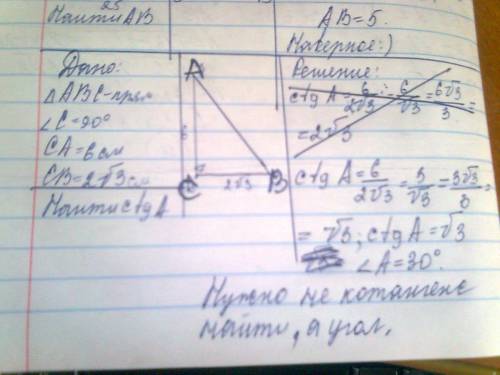 25
Найти АВ
АВ=5.
Наверное:)
Дано:
△ABC-прям
∠C=90°
CA=6см
CB=2√3см
Найти ctgA
A
6
C
2√3
B
Решение:
ctg A=6/2√3=6/√3=6√3/3=
=2√3
ctg A=6/2√3=3/√3=3√3/3=
=√3; ctg A=√3
∠A=30°.
Нужно не котангенс
найти, а угол.